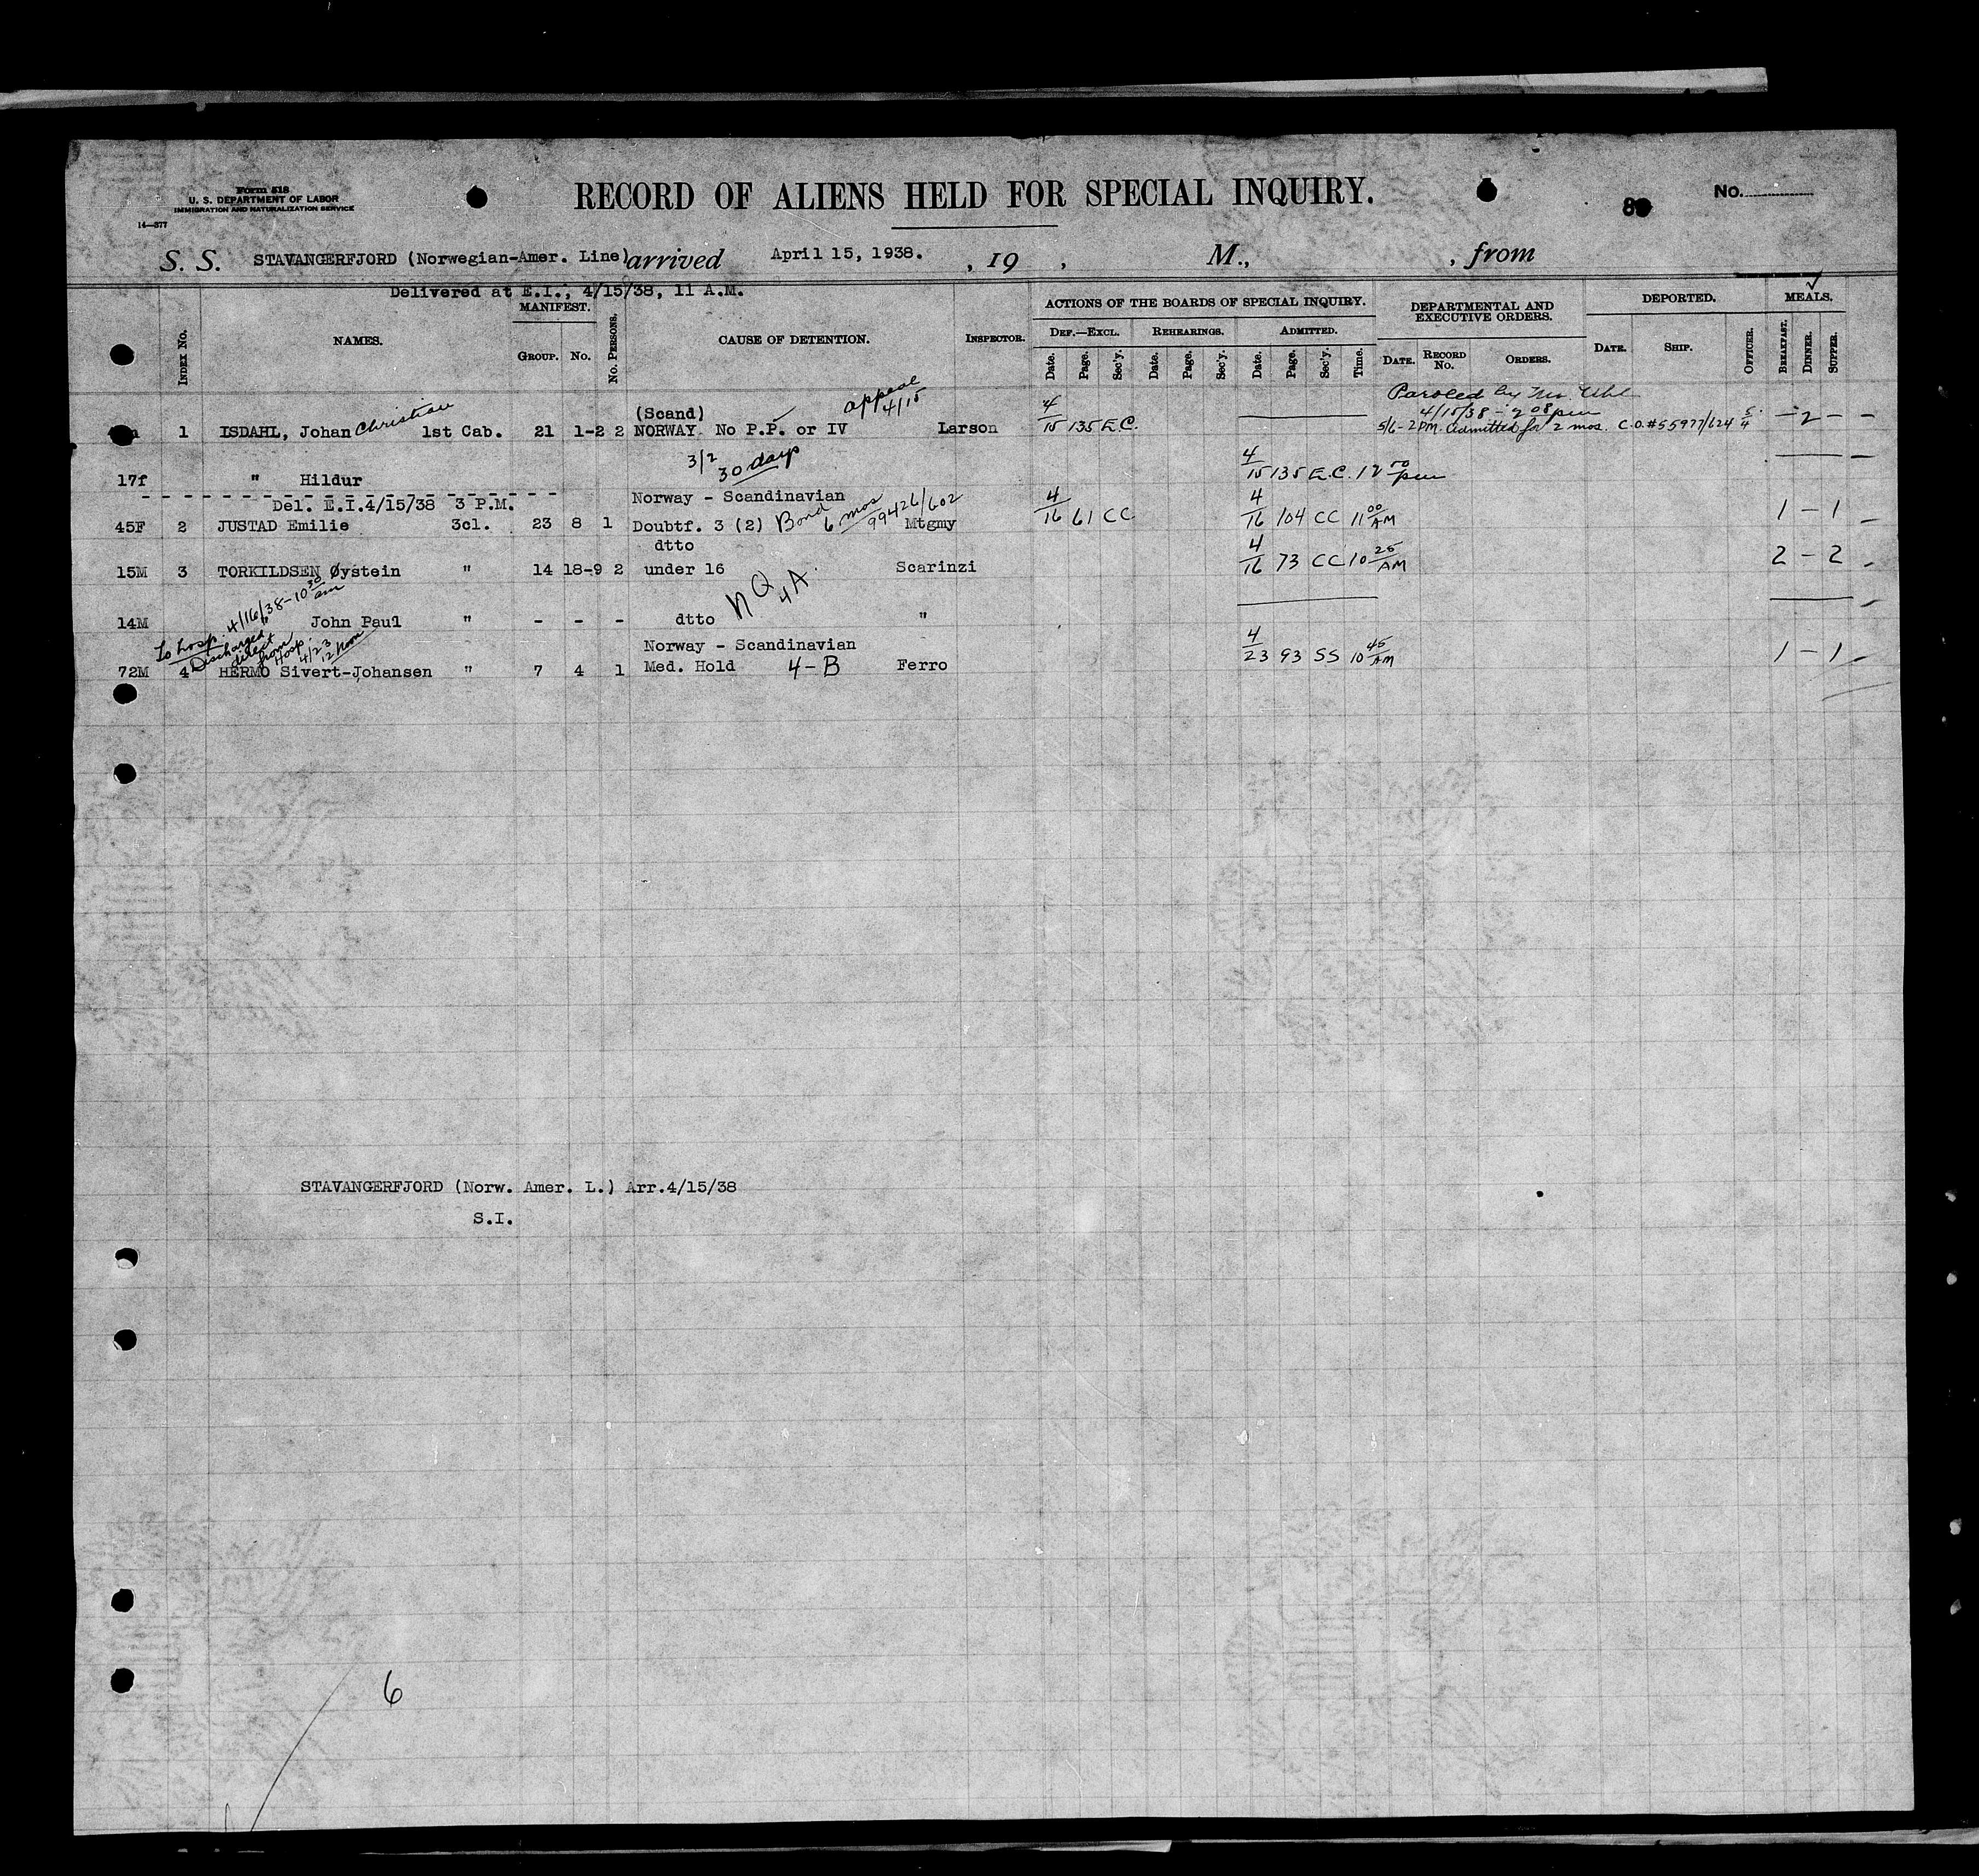 Form 518
U. S. DEPARTMENT OF LABOR
IMMIGRATION AND NATURALIZATION SERVICE
14—377
RECORD OF ALIENS HELD FOR SPECIAL INQUIRY.
No.
S. S. STAVANGERFJORD (Norwegian-Amer. Line) arrived April 15, 1938. , 19 , M., , from
Delivered at E.I., 4/15/38, 11 A.M.
INDEX No. NAMES. MANIFEST. GROUP. No. No. PERSONS. CAUSE OF DETENTION. INSPECTOR.
ACTIONS OF THE BOARDS OF SPECIAL INQUIRY.
DEF.—EXCL. Date. Page. Sec'y. REHEARINGS. Date. Page. Sec'y. ADMITTED. Date. Page. Sec'y. Time.
DEPARTMENTAL AND EXECUTIVE ORDERS. DATE. RECORD No. ORDERS.
DEPORTED. DATE. SHIP. OFFICER.
MEALS. BREAKFAST. DINNER. SUPPER.
(Scand) appeal 4/15 Paroled by Mr. Uhl
4/15/38 - 2 08 pm
1 ISDAHL, Johan Christian 1st Cab. 21 1-2 2 NORWAY No P.P. or IV Larson 4/15 135 E.C. 5/6 - 2 PM. admitted for 2 mos. C.O.#55977/624 5/4 - 2 - -
3/2 30 days
17f " Hildur 4/15 135 E.C. 12 50 pm
Del. E.I.4/15/38 3 P.M. Norway - Scandinavian
45F 2 JUSTAD Emilie 3cl. 23 8 1 Doubtf. 3 (2) Bond 6 mos 99426/602 Mtgmy 4/16 61 CC 4/16 104 CC 11 00 AM 1 - 1 -
dtto
15M 3 TORKILDSEN Øystein " 14 18-9 2 under 16 Scarinzi 4/16 73 CC 10 25 AM 2 - 2 -
14M John Paul " - - - dtto "
To hosp. 4/16/38-10 30 am
Discharged from Hosp. 4/23 12 noon
Norway - Scandinavian
72M 4 HERMO Sivert-Johansen " 7 4 1 Med. Hold 4-B Ferro 4/23 93 SS 10 45 AM 1 - 1 -
STAVANGERFJORD (Norw. Amer. L.) Arr.4/15/38
S.I.
6